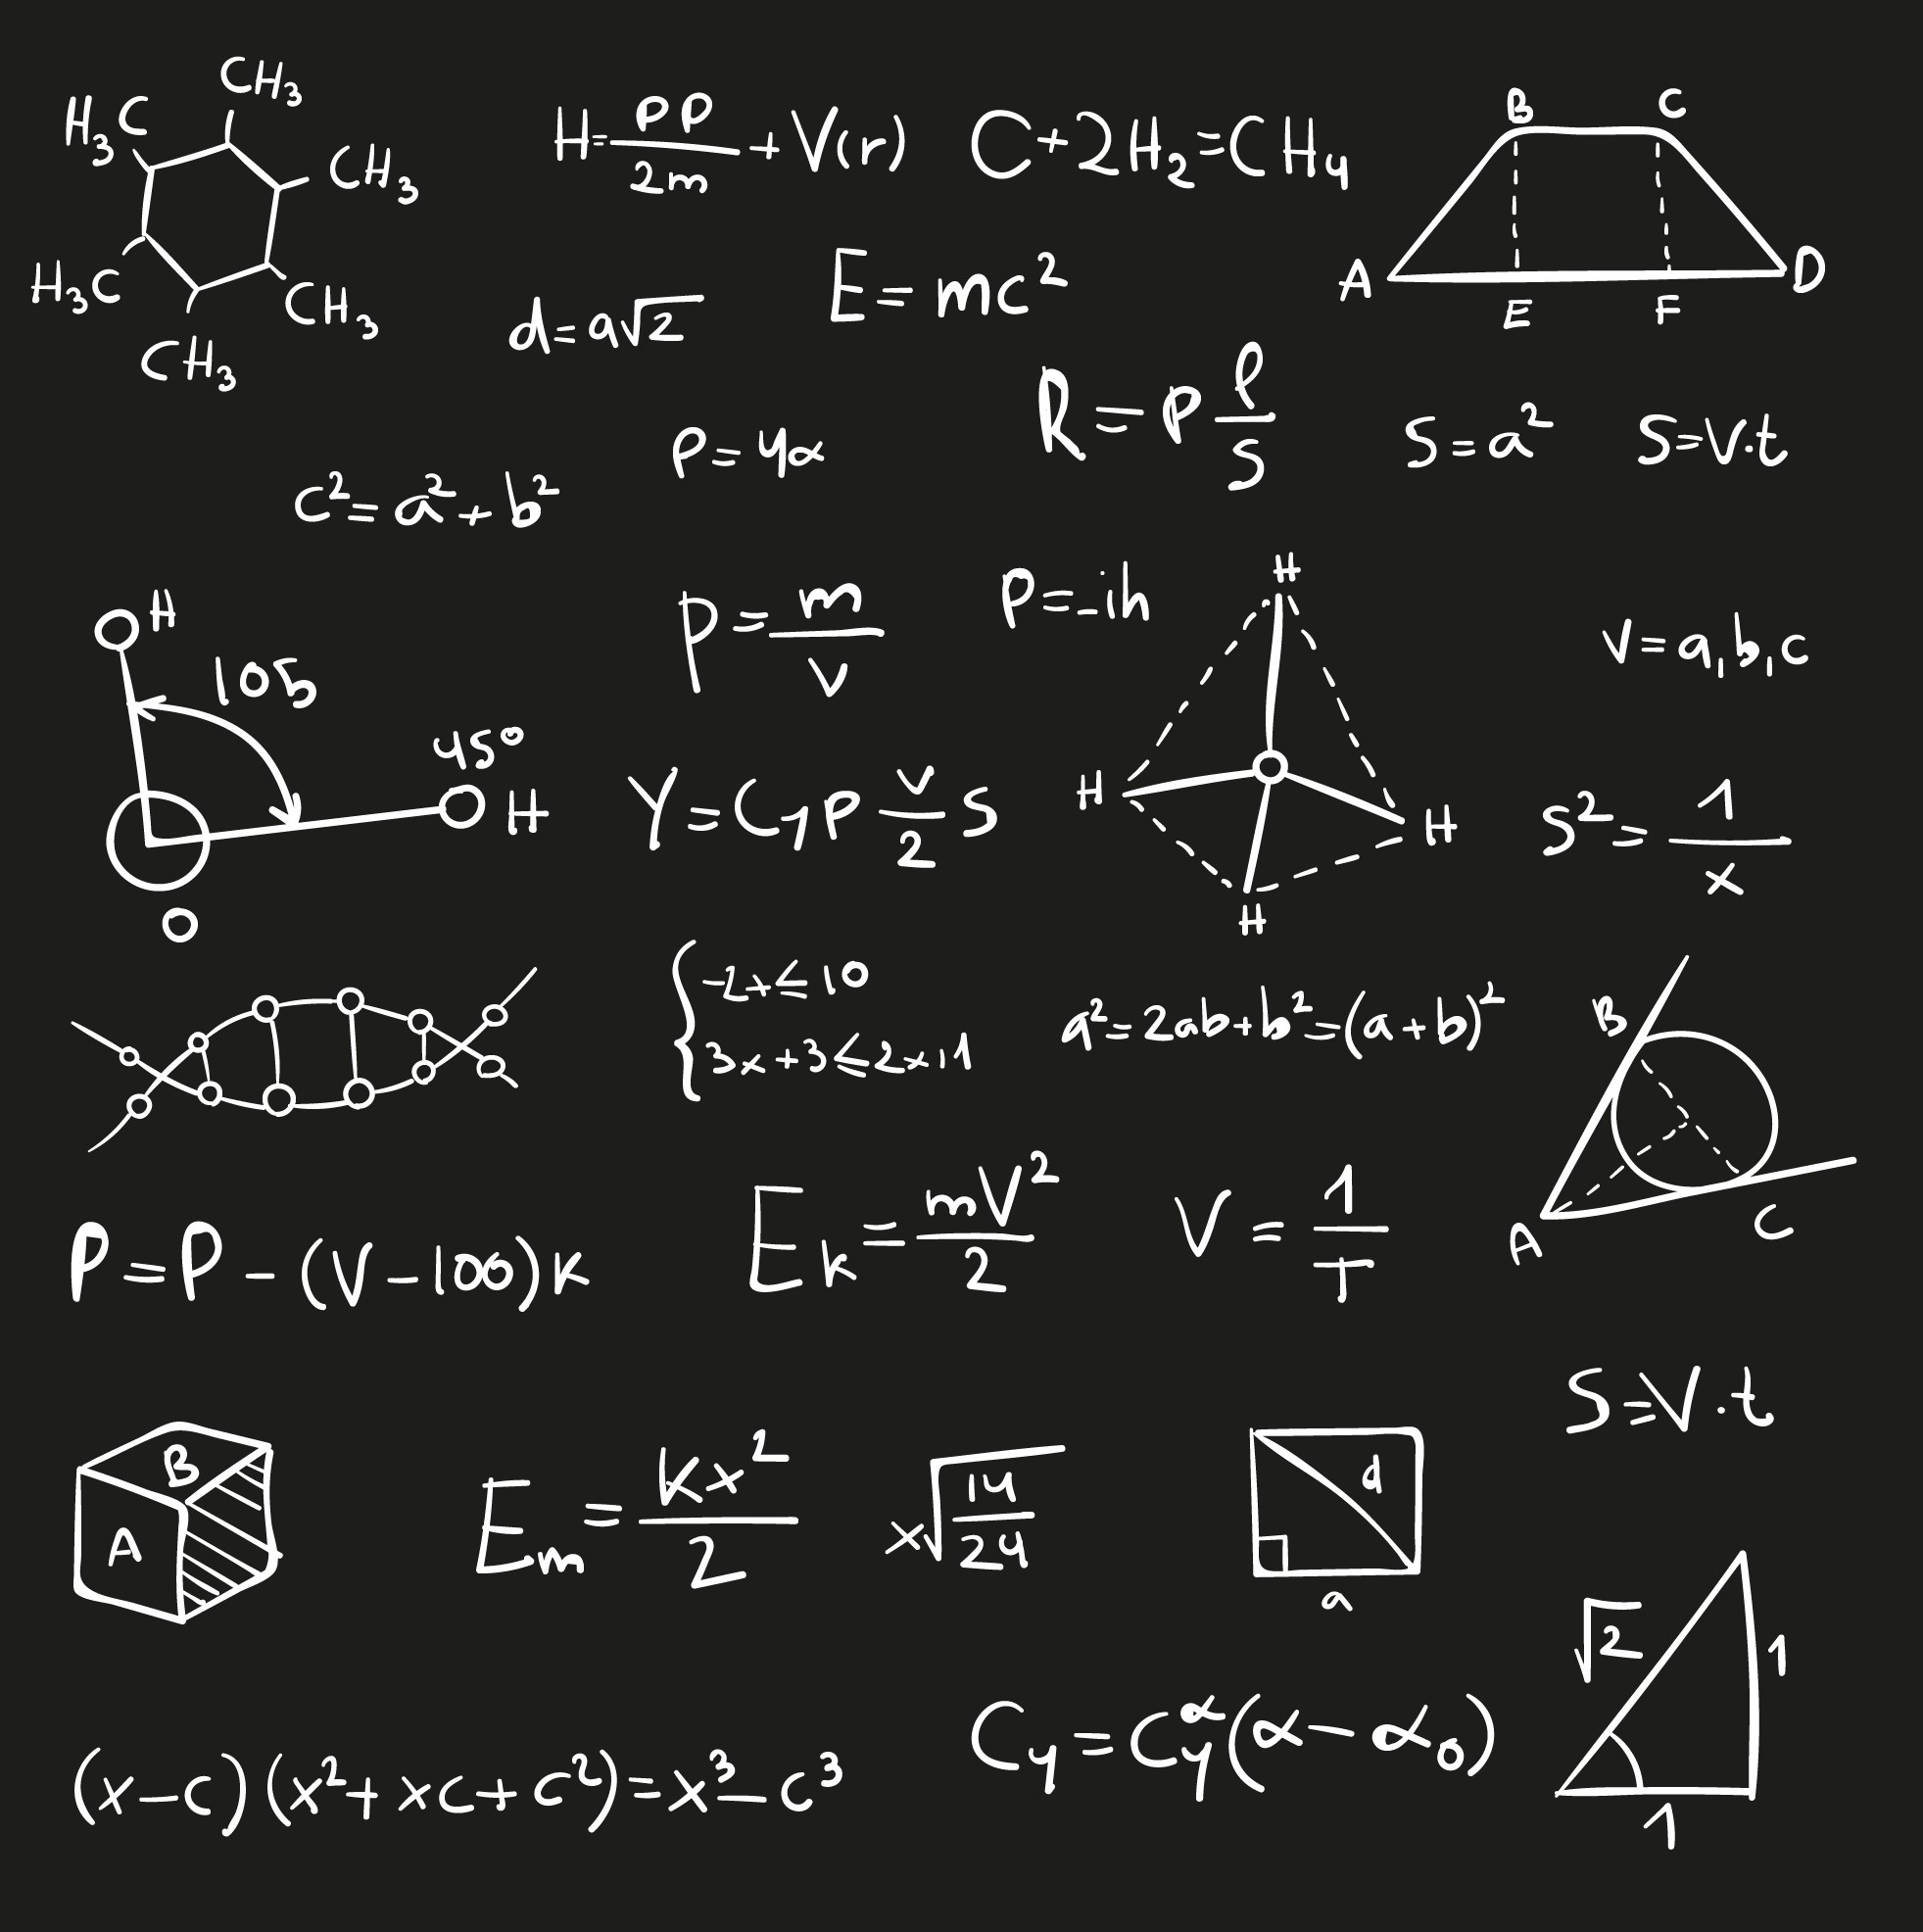 CH₃
H₃C
CH₃
H₃C
CH₃
CH₃
H=PP/2m+V(r)
C+2H₂=CH₄
B C
A D
E F
d=a√2
E=mc²
P=4α
R=ρℓ/s
S=a²
S=V·t
c²=a²+b²
H
105
45°
H
O
P=m/V
P=-ih
H
H
H
H
V=a,b,c
Y=Cyp v/2 S
S²=1/x
-2x≤10
3x+3≤2x11
a²=2ab+b²=(a+b)²
B
A
C
P=P-(V-100)K
Eₖ=mV²/2
V=1/T
S=V·t
B
A
Eₘ=Kx²/2
x√14/24
d
a
√2
1
1
(x-c)(x²+xc+c²)=x³-c³
Cy=Cyα(α-α₀)